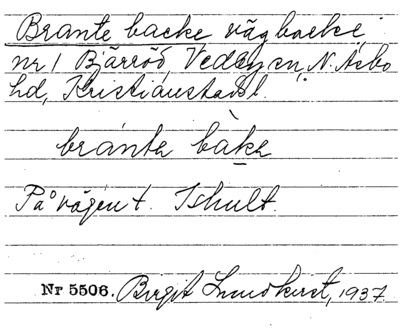 Brante backe vägbacke
nr 1 Bjärröd, Vedby sn, N. Åsbo
hd, Kristianstads l.
bránta bàka
På vägen t. Ishult.
Nr 5506. Birgit Lundkvist, 1937